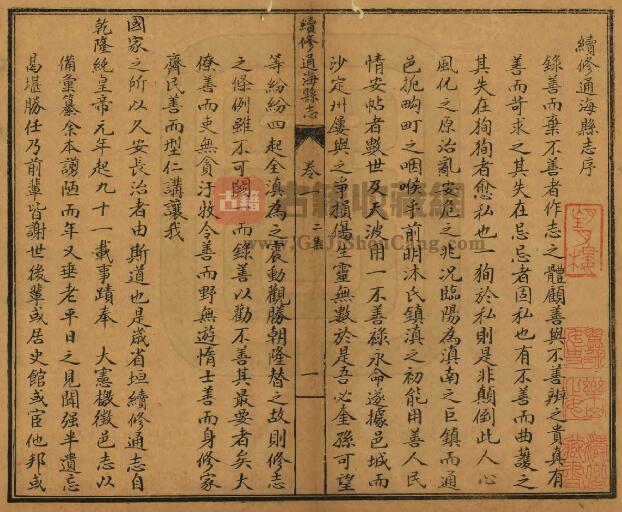 續修通海縣志序
錄善而棄不善者作志之體顧善與不善辨之貴真有
善而苛求之其失在忌忌者固私也有不善而曲護之
其失在狥狥者愈私也一狥於私則是非顛倒此人心
風化之原治亂安危之兆況臨陽為滇南之巨鎮而通
邑扼町之咽喉乎前明沐氏鎮滇之初能用善人民
情安帖者數世及天波用一不善祿永命遂據邑城而
沙定州屢與之爭損傷生靈無數於是吾必奎孫可望
續修通海縣志
卷
二集
一
等紛紛四起全滇為之震動觀勝朝隆替之故則修志
之條例雖不可 而錄善以勸不善其最要者矣大
僚善而吏無貪汙牧令善而野無遊惰士善而身修家
齊民善而型仁講讓我
國家之所以久安長治者由斯道也是歲省垣續修通志自
乾隆純皇帝元年起九十一載事蹟奉 大憲檄徵邑志以
備彙纂余本譾陋而年又垂老平日之見聞强半遺忘
曷堪勝任乃前輩皆謝世後輩或居史館或宦他邦或
古籍
古籍收藏網
www.GuJiShouCang.com